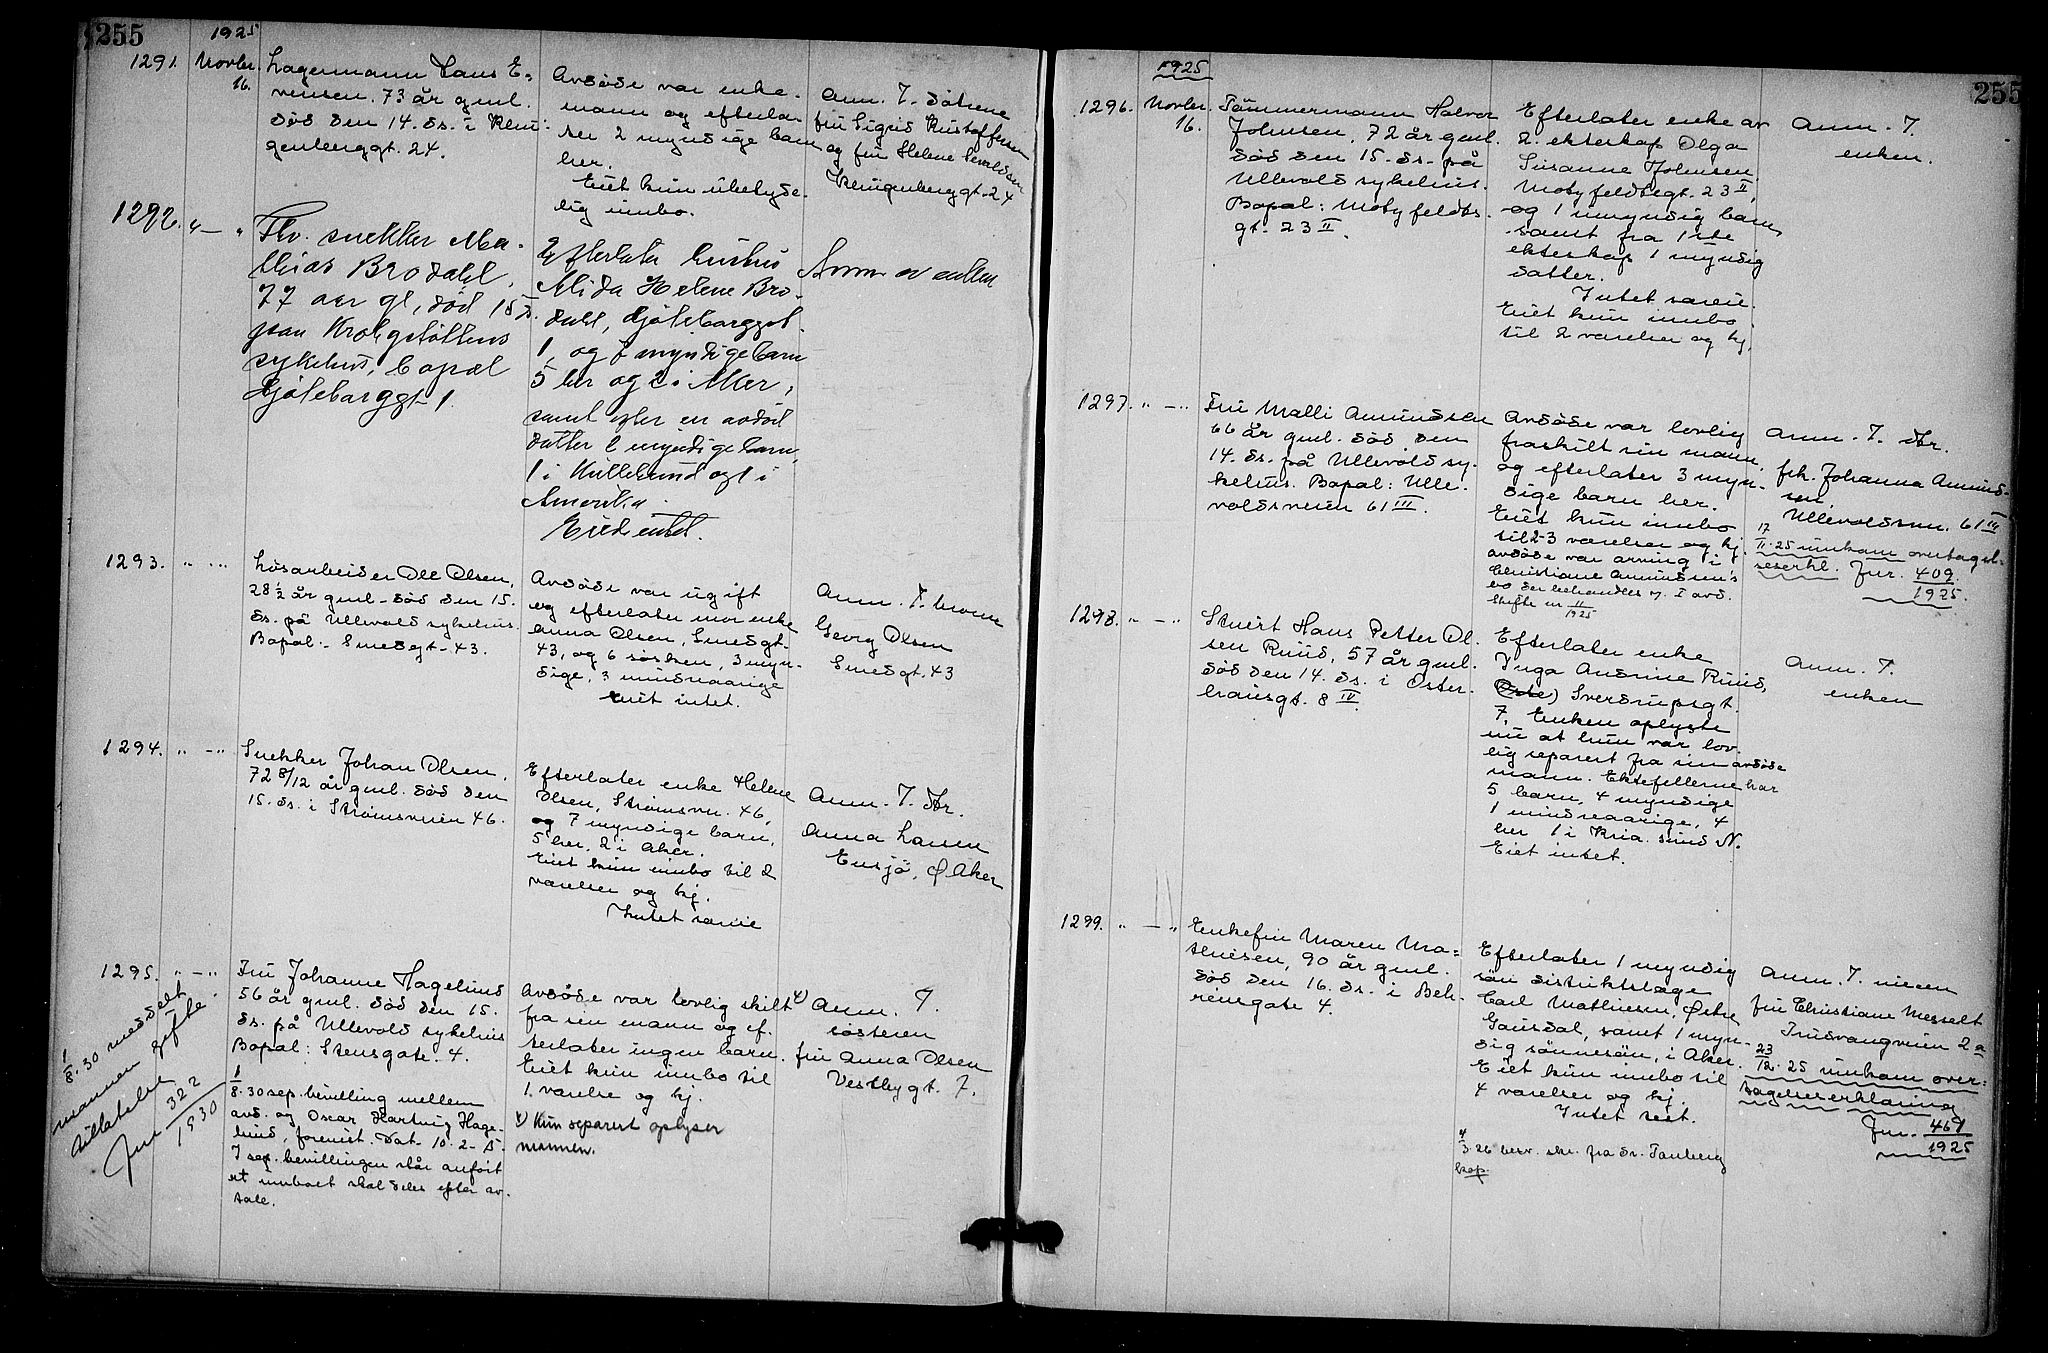 255
1925
1291. Novbr. 16.
Lagermann Hans E-
vensen. 73 år gml.
død den 14. ds. i Klin-
genberggt. 24.
Avdøde var enke-
mann og efterla-
ter 2 myndige barn
her.
Eiet kun ubetyde-
lig innbo.
Anm. T. døtrene
fru Sigrid Kristoffersen
og fru Helene
Klingenberggt. 24
1292. " — "
Fhv. snekker Ma-
thias Brodahl,
77 aar gl, død 15 ds.
paa Krohgstøttens
sykehus, bopæl
Gjøteborggt 1.
Efterlater hustru
Alida Helene Bro-
dahl, Gjøteborggt.
1, og myndige barn
5 her og 2 i Aker,
samt efter en avdød
datter 2 myndige barn,
1 i og 1 i
Amerika.
Eied intet.
Anm av enken
1293. " — "
Løsarbeider Ole Olsen,
28 1/2 år gml. død den 15.
ds. på Ullevold sykehus.
Bopæl: Smedgt. 43.
Avdøde var ugift
og efterlater mor enke
Anna Olsen, Smedgt.
43, og 6 søsken, 3 myn-
dige, 3 mindreaarige
Eiet intet.
Anm. T. broren
Georg Olsen
Smedgt. 43
1294. " — "
Snekker Johan Olsen,
72 8/12 år gml. død den
15. ds. i Strømsveien 46.
Efterlater enke Helene
Olsen, Strømsvn. 46,
og 7 myndige barn,
5 her, 2 i Aker.
Eiet kun innbo til 2
værelser og kj.
Intet særeie
Anm. T. dtr.
Anna Larsen
Ensjø, Ø Aker
1295. " — "
Fru Johanne Hagelund
56 år gml. død den 15.
ds. på Ullevold sykehus
Bopal: Stensgate. 4.
1/8. 30 sep. bevilling mellem
avd. og Oscar Hartvig Hage-
lund, forevist. Dat. 10-2-15.
I sep. bevillingen står anført
at innboet skal deles efter av-
tale.
1/8. 30 meddelt
mannen gifte
tillatelse
Jnr 322
1930
Avdøde var lovlig skilt x)
fra sin mann og ef-
terlater ingen barn.
Eiet kun innbo til
1. værelse og kj.
x) Kun separert oplyser
mannen.
Anm. T.
søsteren
fru Anna Olsen
Vestbygt. 7.
1925
255
1296. Novbr. 16.
Tømmermann Halvor
Johnsen, 72 år gml.
død den 15. ds. på
Ullevold sykehus.
Bopal: Motzfeldts-
gt. 23 II.
Efterlater enke av
2. ekteskap Olga
Susanne Johnsen,
Motzfeldtsgt. 23 II,
og 1 umyndig barn,
samt fra 1ste
ekteskap 1 myndig
datter.
Intet særeie.
Eiet kun innbo
til 2 værelser og kj.
Anm. T.
enken.
1297. " — "
Fru Malli Amundsen
66 år gml. død den
14. ds. på Ullevold sy-
kehus. Bopal: Ulle-
voldsveien 61 III.
Avdøde var lovlig
fraskilt sin mann,
og efterlater 3 myn-
dige barn her.
Eiet kun innbo
til 2-3 værelser og kj.
Avdøde var arving i
Christiane Amundsen's
bo der behandles v. I avd.
Skifte nr 11/1925
Anm. T. dtr.
frk. Johanna Amund-
sen
Ullevoldsvn. 61 III
17/11. 25 innkom overtagel-
seserkl. Jnr. 409
1925.
1298. " — "
Stuert Hans Petter Ol-
sen Ruud, 57 år gml.
død den 14. ds. i Øster-
hausgt. 8 IV.
Efterlater enke
Inga Andrine Ruud,
Sverdrupsgt.
7. Enken oplyste
nu at hun var lov-
lig separert fra sin avdøde
mann. Ektefellerne har
5 barn, 4 myndige
1 mindreaarige, 4
her 1 i Kria. sund N.
Eiet intet.
Anm. T.
enken
1299. " — "
Enkefru Maren Ma-
thiesen, 90 år gml.
død den 16. ds. i Beh-
rensgate 4.
Efterlater 1 myndig
søn distriktslæge
Carl Mathiesen, Østre
Gausdal, samt 1 myn-
dig sønnesøn, i Aker.
Eiet kun innbo til
4 værelser og kj.
Intet test.
4/3. 26 besv. skr. fra dr. Tanberg
kop.
Anm. T. niecen
fru Christiane Messelt
Trudvangveien 2 a
23/12. 25 innkom over-
tagelseserklæring
Jnr. 467
1925